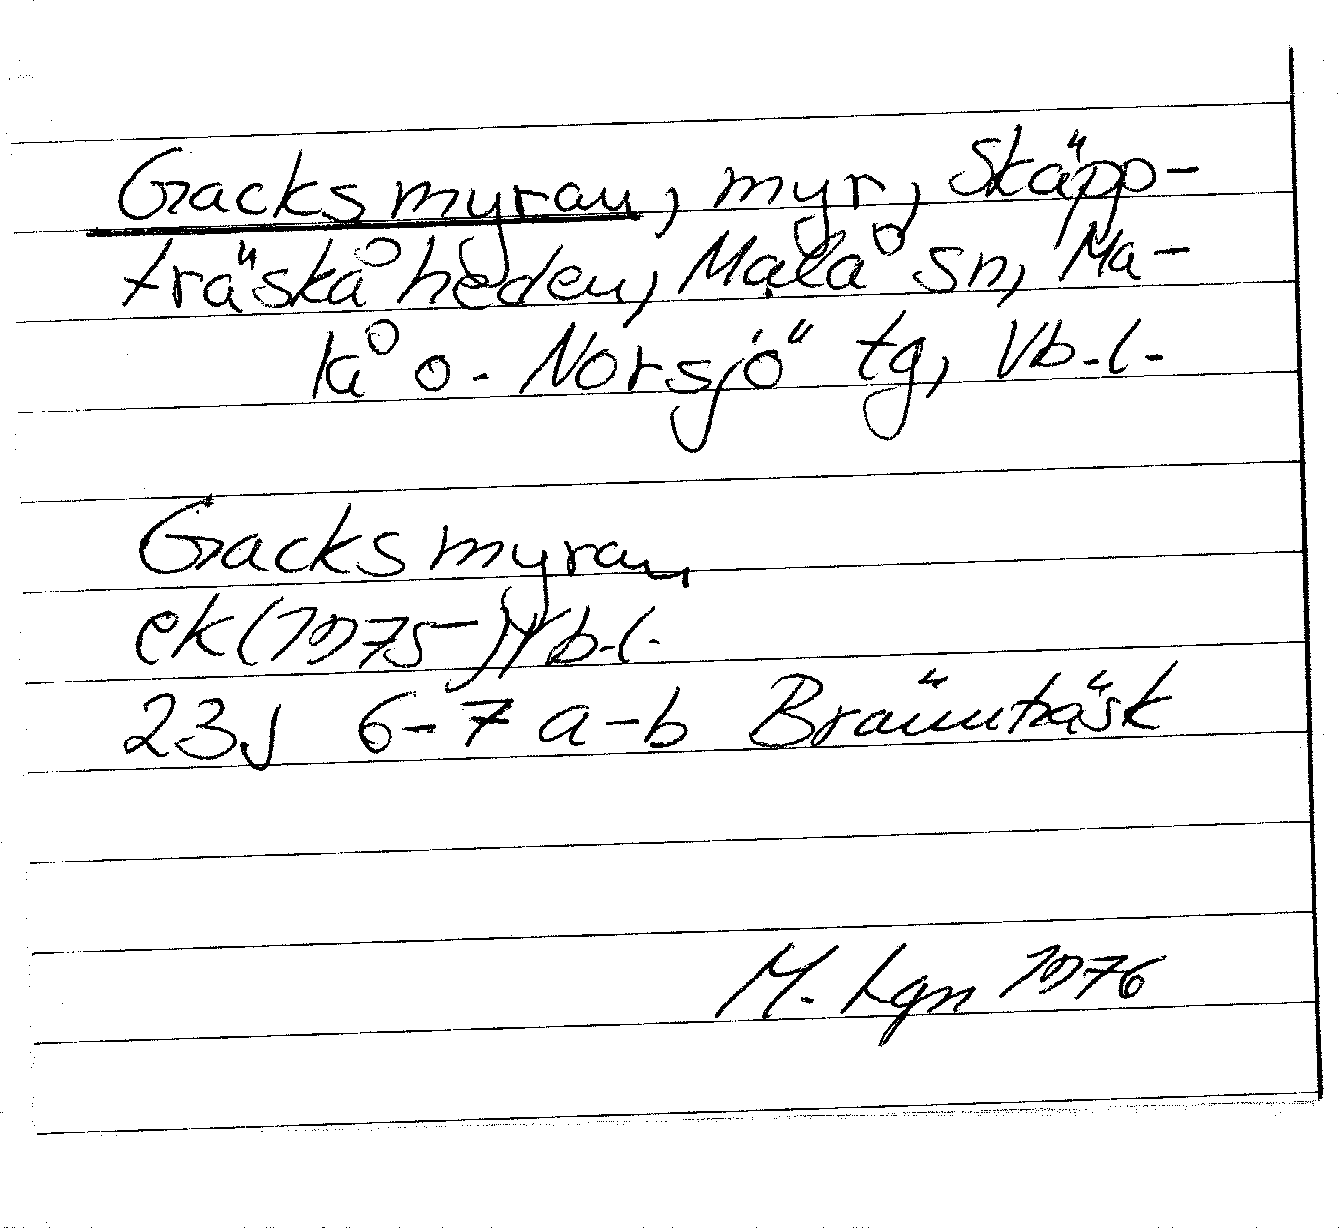 Gacksmyran, myr, Skäpp-
träskåheden, Malå sn, Ma-
lå o. Norsjö tg, Vb.l.
Gacksmyran
ek (1975) Vb.l.
23J 6-7 a-b Brännträsk
M. Lgn 1976